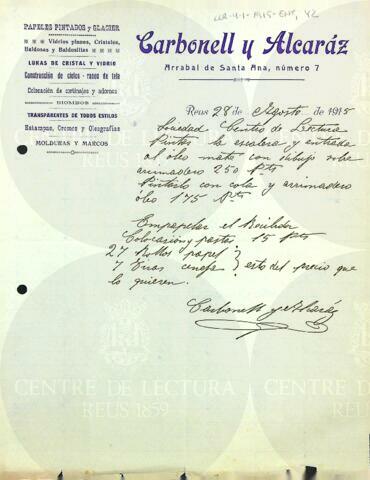 PAPELES PINTADOS y GLACIER
Vidrios planos, Cristales,
Baldosas y Baldosillas
LUNAS DE CRISTAL Y VIDRIO
Construcción de cielos - rasos de tela
Colocación de cortinajes y adornos
BIOMBOS
TRANSPARENTES DE TODOS ESTILOS
Estampas, Cromos y Oleografías
MOLDURAS Y MARCOS
Carbonell y Alcaráz
Arrabal de Santa Ana, número 7
Reus 28 de Agosto de 1915
Sociedad Centro de Lectura
Pintar la escalera y entrada
al óleo mate con dibujo sobre
arrimadero 250 Pts
Pintarlo con cola y arrimadero
óleo 175 Pts
Empapelar el Recibidor
Colocación y pastas 15 Pts
27 Rollos papel
7 Tiras cenefa } esto del precio que
lo quieren.
Carbonell y Alcaráz
CENTRE DE LECTURA
REUS 1859